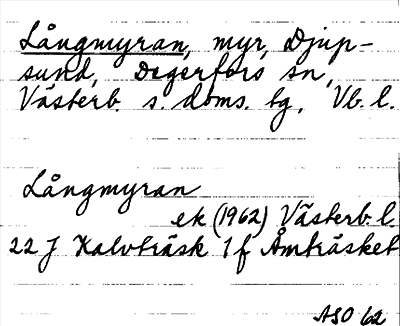 Långmyran, myr, Djup-
sund, Degerfors sn,
Västerb. s. doms. tg, Vb. l.
Långmyran
ek (1962) Västerb. l
22 J Kalvträsk 1 f Åmträsket
ASO 62